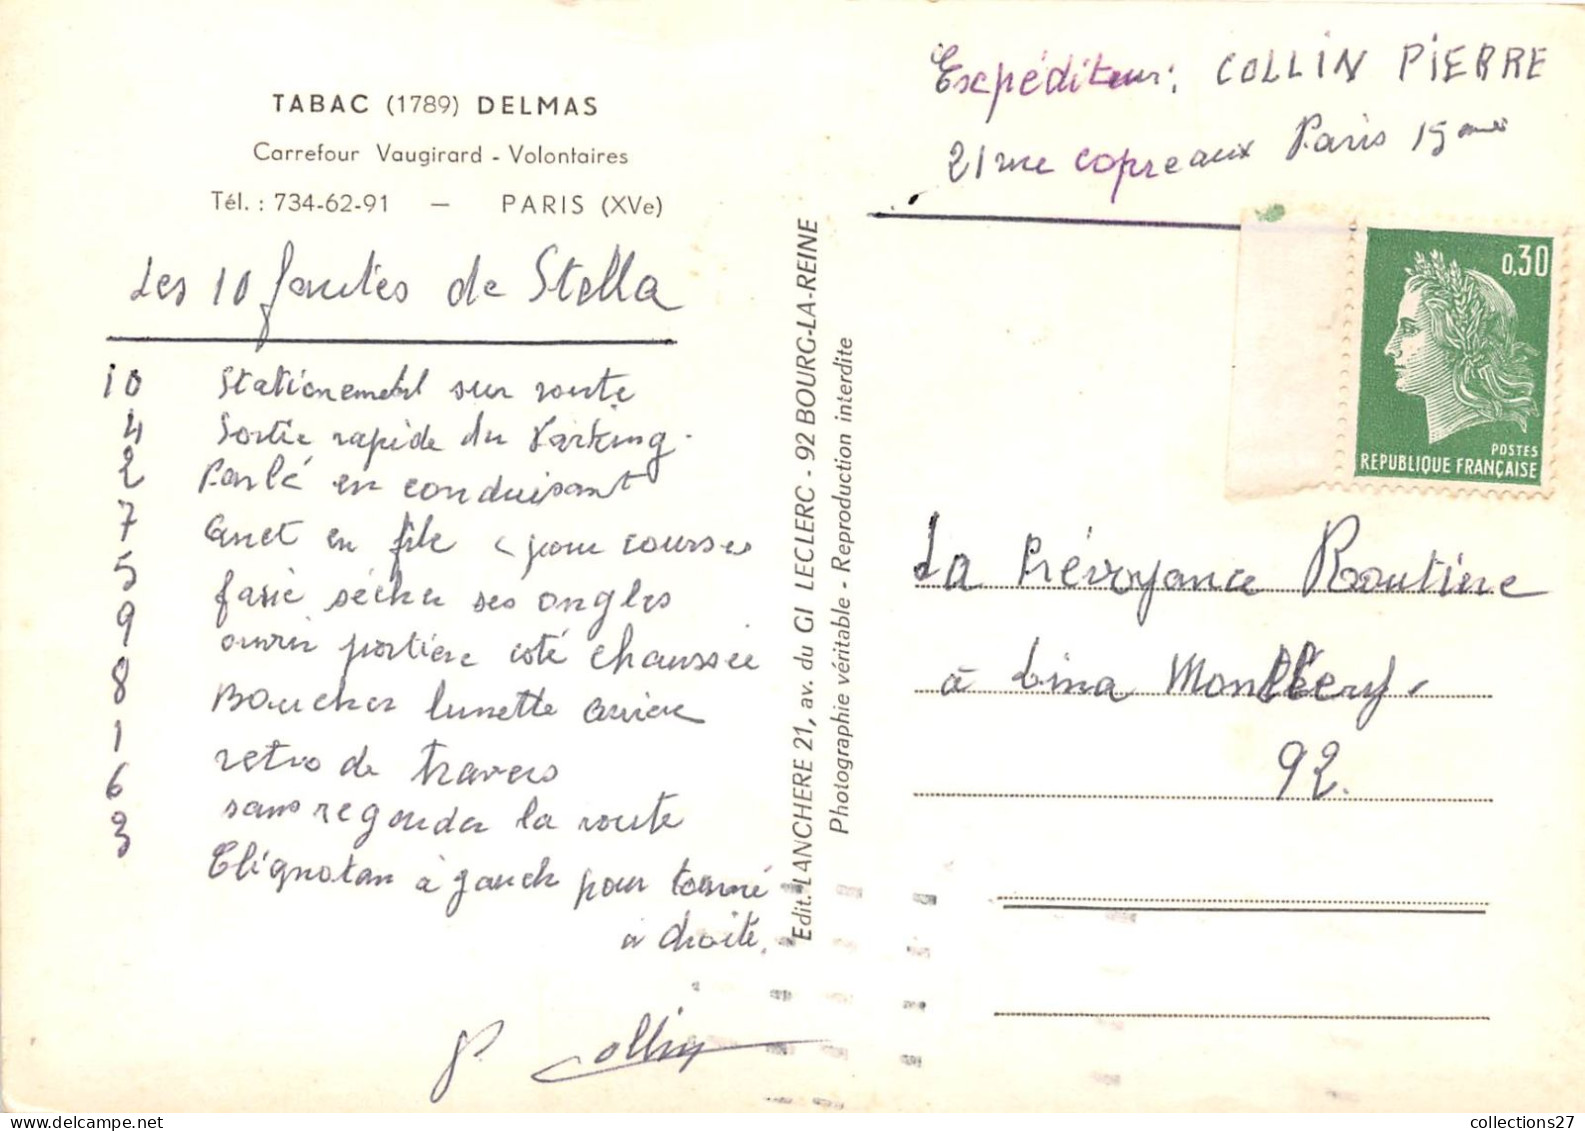 TABAC (1789) DELMAS
Carrefour Vaugirard - Volontaires
Tél. : 734-62-91 — PARIS (XVe)
Les 10 fautes de Stella
10 Stationement sur route
4 Sortie rapide du Parking.
2 Parlé en conduisant
7 arret en file pour courses
5 faire sécher ses ongles
9 ouvrir portière coté chaussée
8 Boucher lunette arriere
1 retro de travers
6 sans regarder la route
3 Clignotan à gauch pour tourné
à droite.
P. Collin
Edit. LANCHERE 21, av. du Gl LECLERC - 92 BOURG-LA-REINE
Photographie véritable - Reproduction interdite
Expéditeur: COLLIN PIERRE
21 rue copreaux Paris 15eme
0,30
POSTES
REPUBLIQUE FRANÇAISE
La Prévoyance Routiere
à Lina Montlhery.
92.
collections27